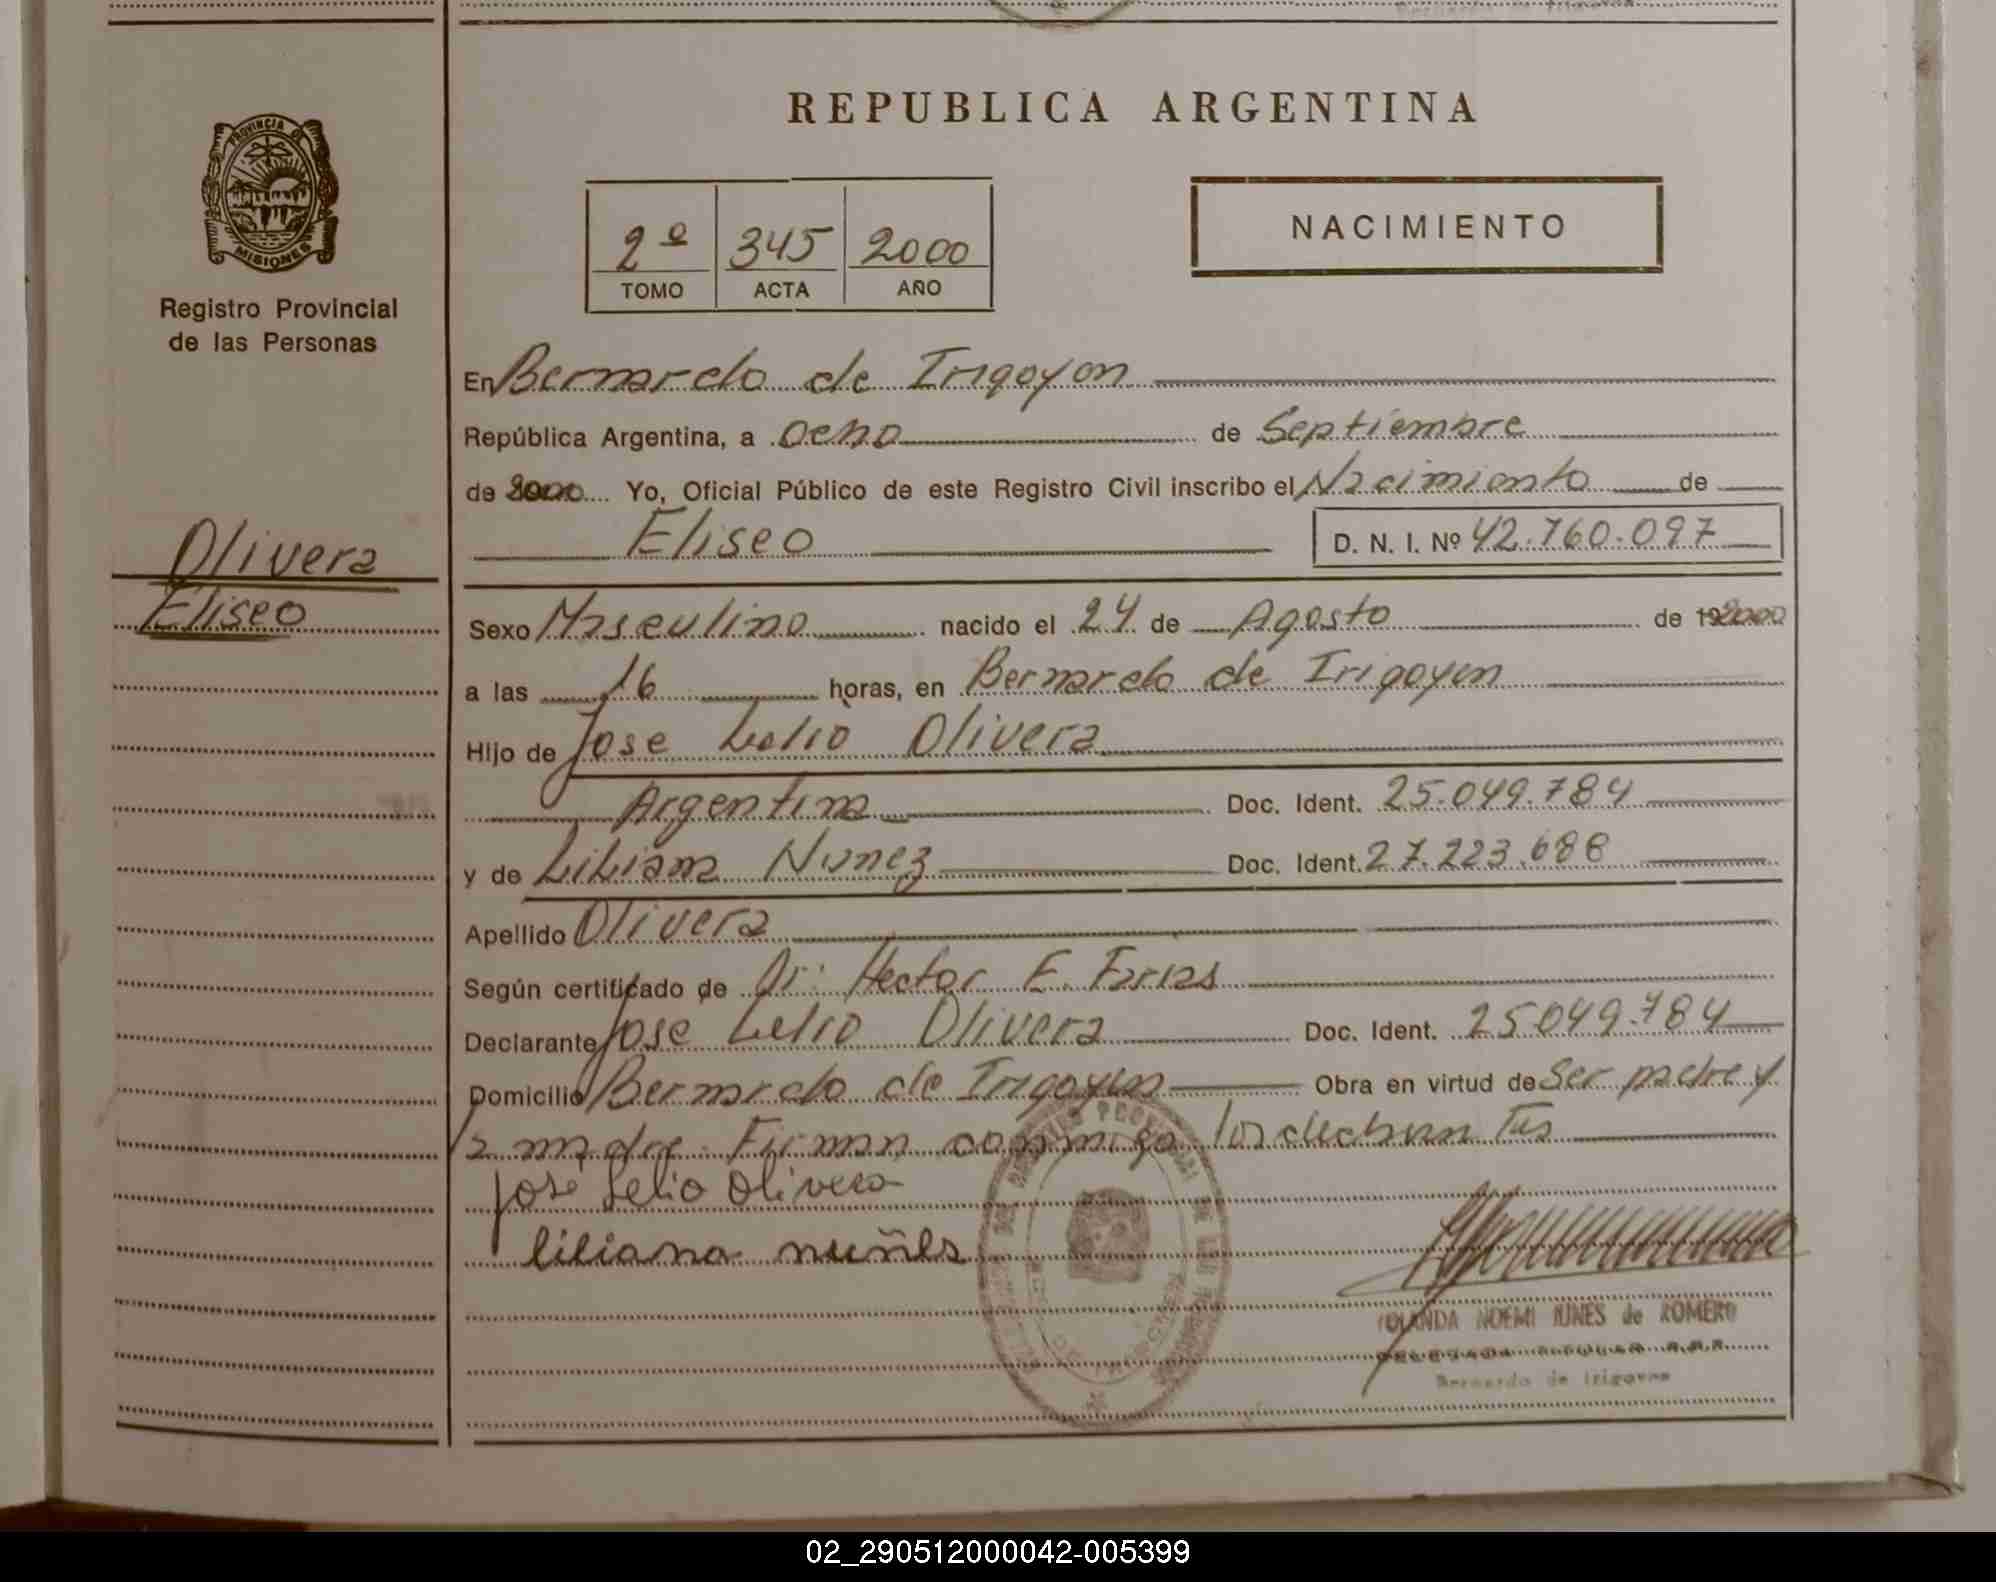 REPUBLICA ARGENTINA
PROVINCIA DE
MISIONES
Registro Provincial
de las Personas
2º 345 2000
TOMO ACTA AÑO
NACIMIENTO
En Bernardo de Irigoyen
República Argentina, a ocho de Septiembre
de 2000 Yo, Oficial Público de este Registro Civil inscribo el Nacimiento de
Eliseo D. N. I. Nº 42.760.097
Olivera
Eliseo
Sexo Masculino nacido el 24 de Agosto de 192000
a las 16 horas, en Bernardo de Irigoyen
Hijo de Jose Lelio Olivera
Argentina Doc. Ident. 25.049.784
y de Liliana Nunez Doc. Ident. 27.223.688
Apellido Olivera
Según certificado de Dr: Hector E. Farias
Declarante Jose Lelio Olivera Doc. Ident. 25.049.784
Domicilio Bernardo de Irigoyen Obra en virtud de Ser padre y
la madre. Firman conmigo los declarantes
José Lelio Olivera
liliana nuñes
YOLANDA NOEMI IUNES de ROMERO
DELEGADA TITULAR R.P.P.
Bernardo de Irigoyen
02_290512000042-005399